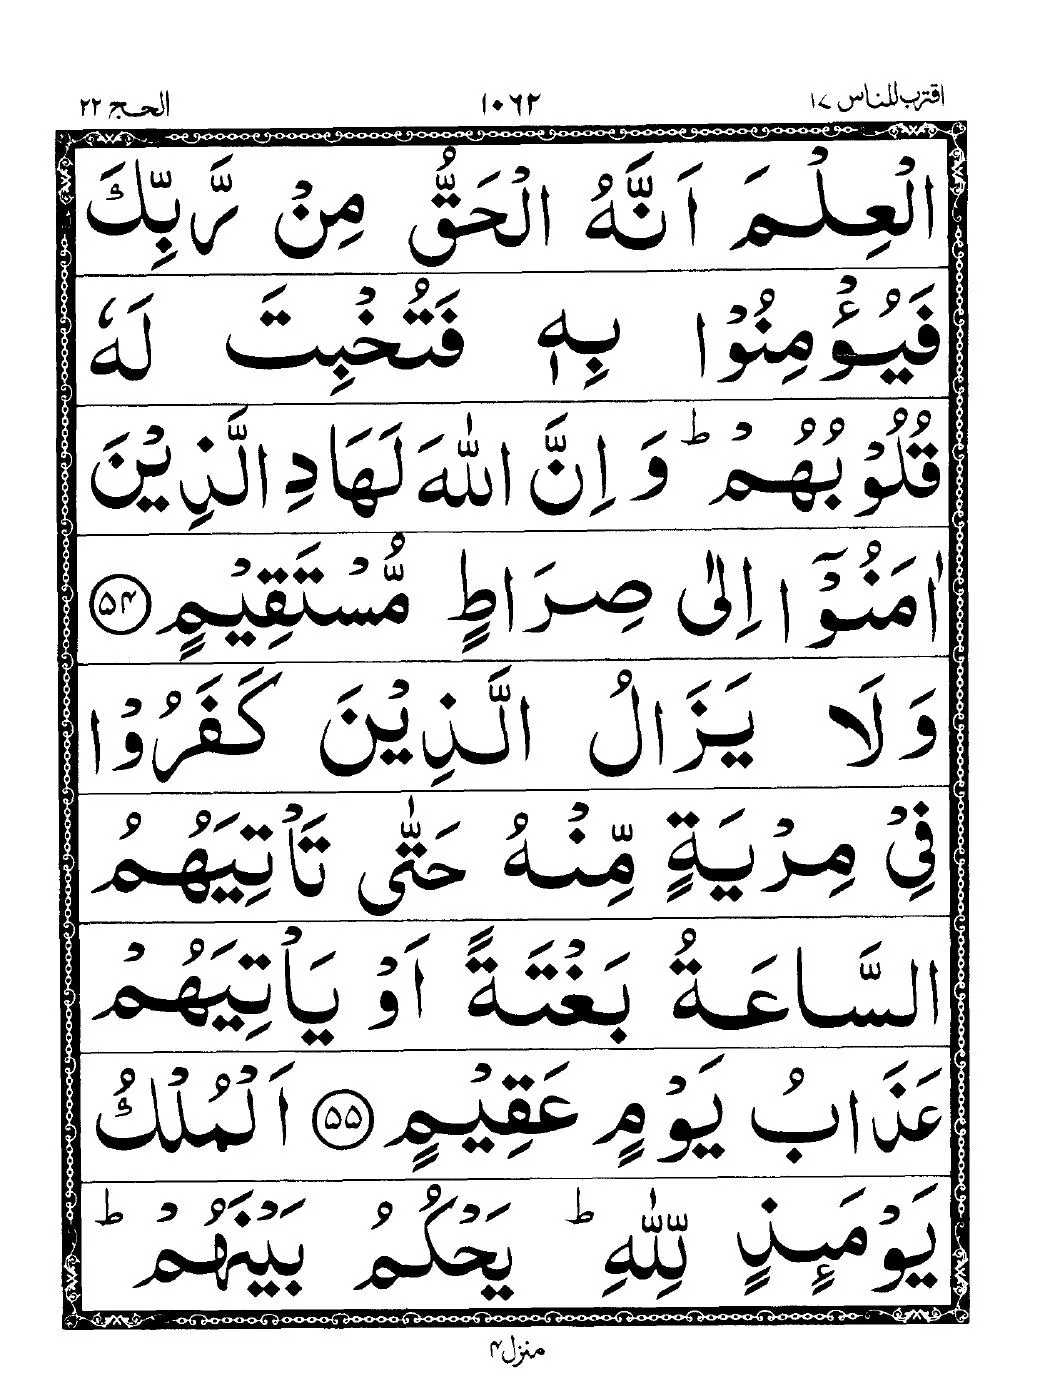 اقترب للناس ۱۷ ۱۰۶۲ الحج ۲۲
الْعِلْمَ اَنَّهُ الْحَقُّ مِنْ رَّبِّكَ
فَيُؤْمِنُوْا بِهٖ فَتُخْبِتَ لَهٗ
قُلُوْبُهُمْ ؕ وَ اِنَّ اللّٰهَ لَهَادِ الَّذِيْنَ
اٰمَنُوْۤا اِلٰى صِرَاطٍ مُّسْتَقِيْمٍ ﴿۵۴﴾
وَلَا يَزَالُ الَّذِيْنَ كَفَرُوْا
فِيْ مِرْيَةٍ مِّنْهُ حَتّٰى تَاْتِيَهُمُ
السَّاعَةُ بَغْتَةً اَوْ يَاْتِيَهُمْ
عَذَابُ يَوْمٍ عَقِيْمٍ ﴿۵۵﴾ اَلْمُلْكُ
يَوْمَئِذٍ لِّلّٰهِ ؕ يَحْكُمُ بَيْنَهُمْ ؕ
منزل ۴